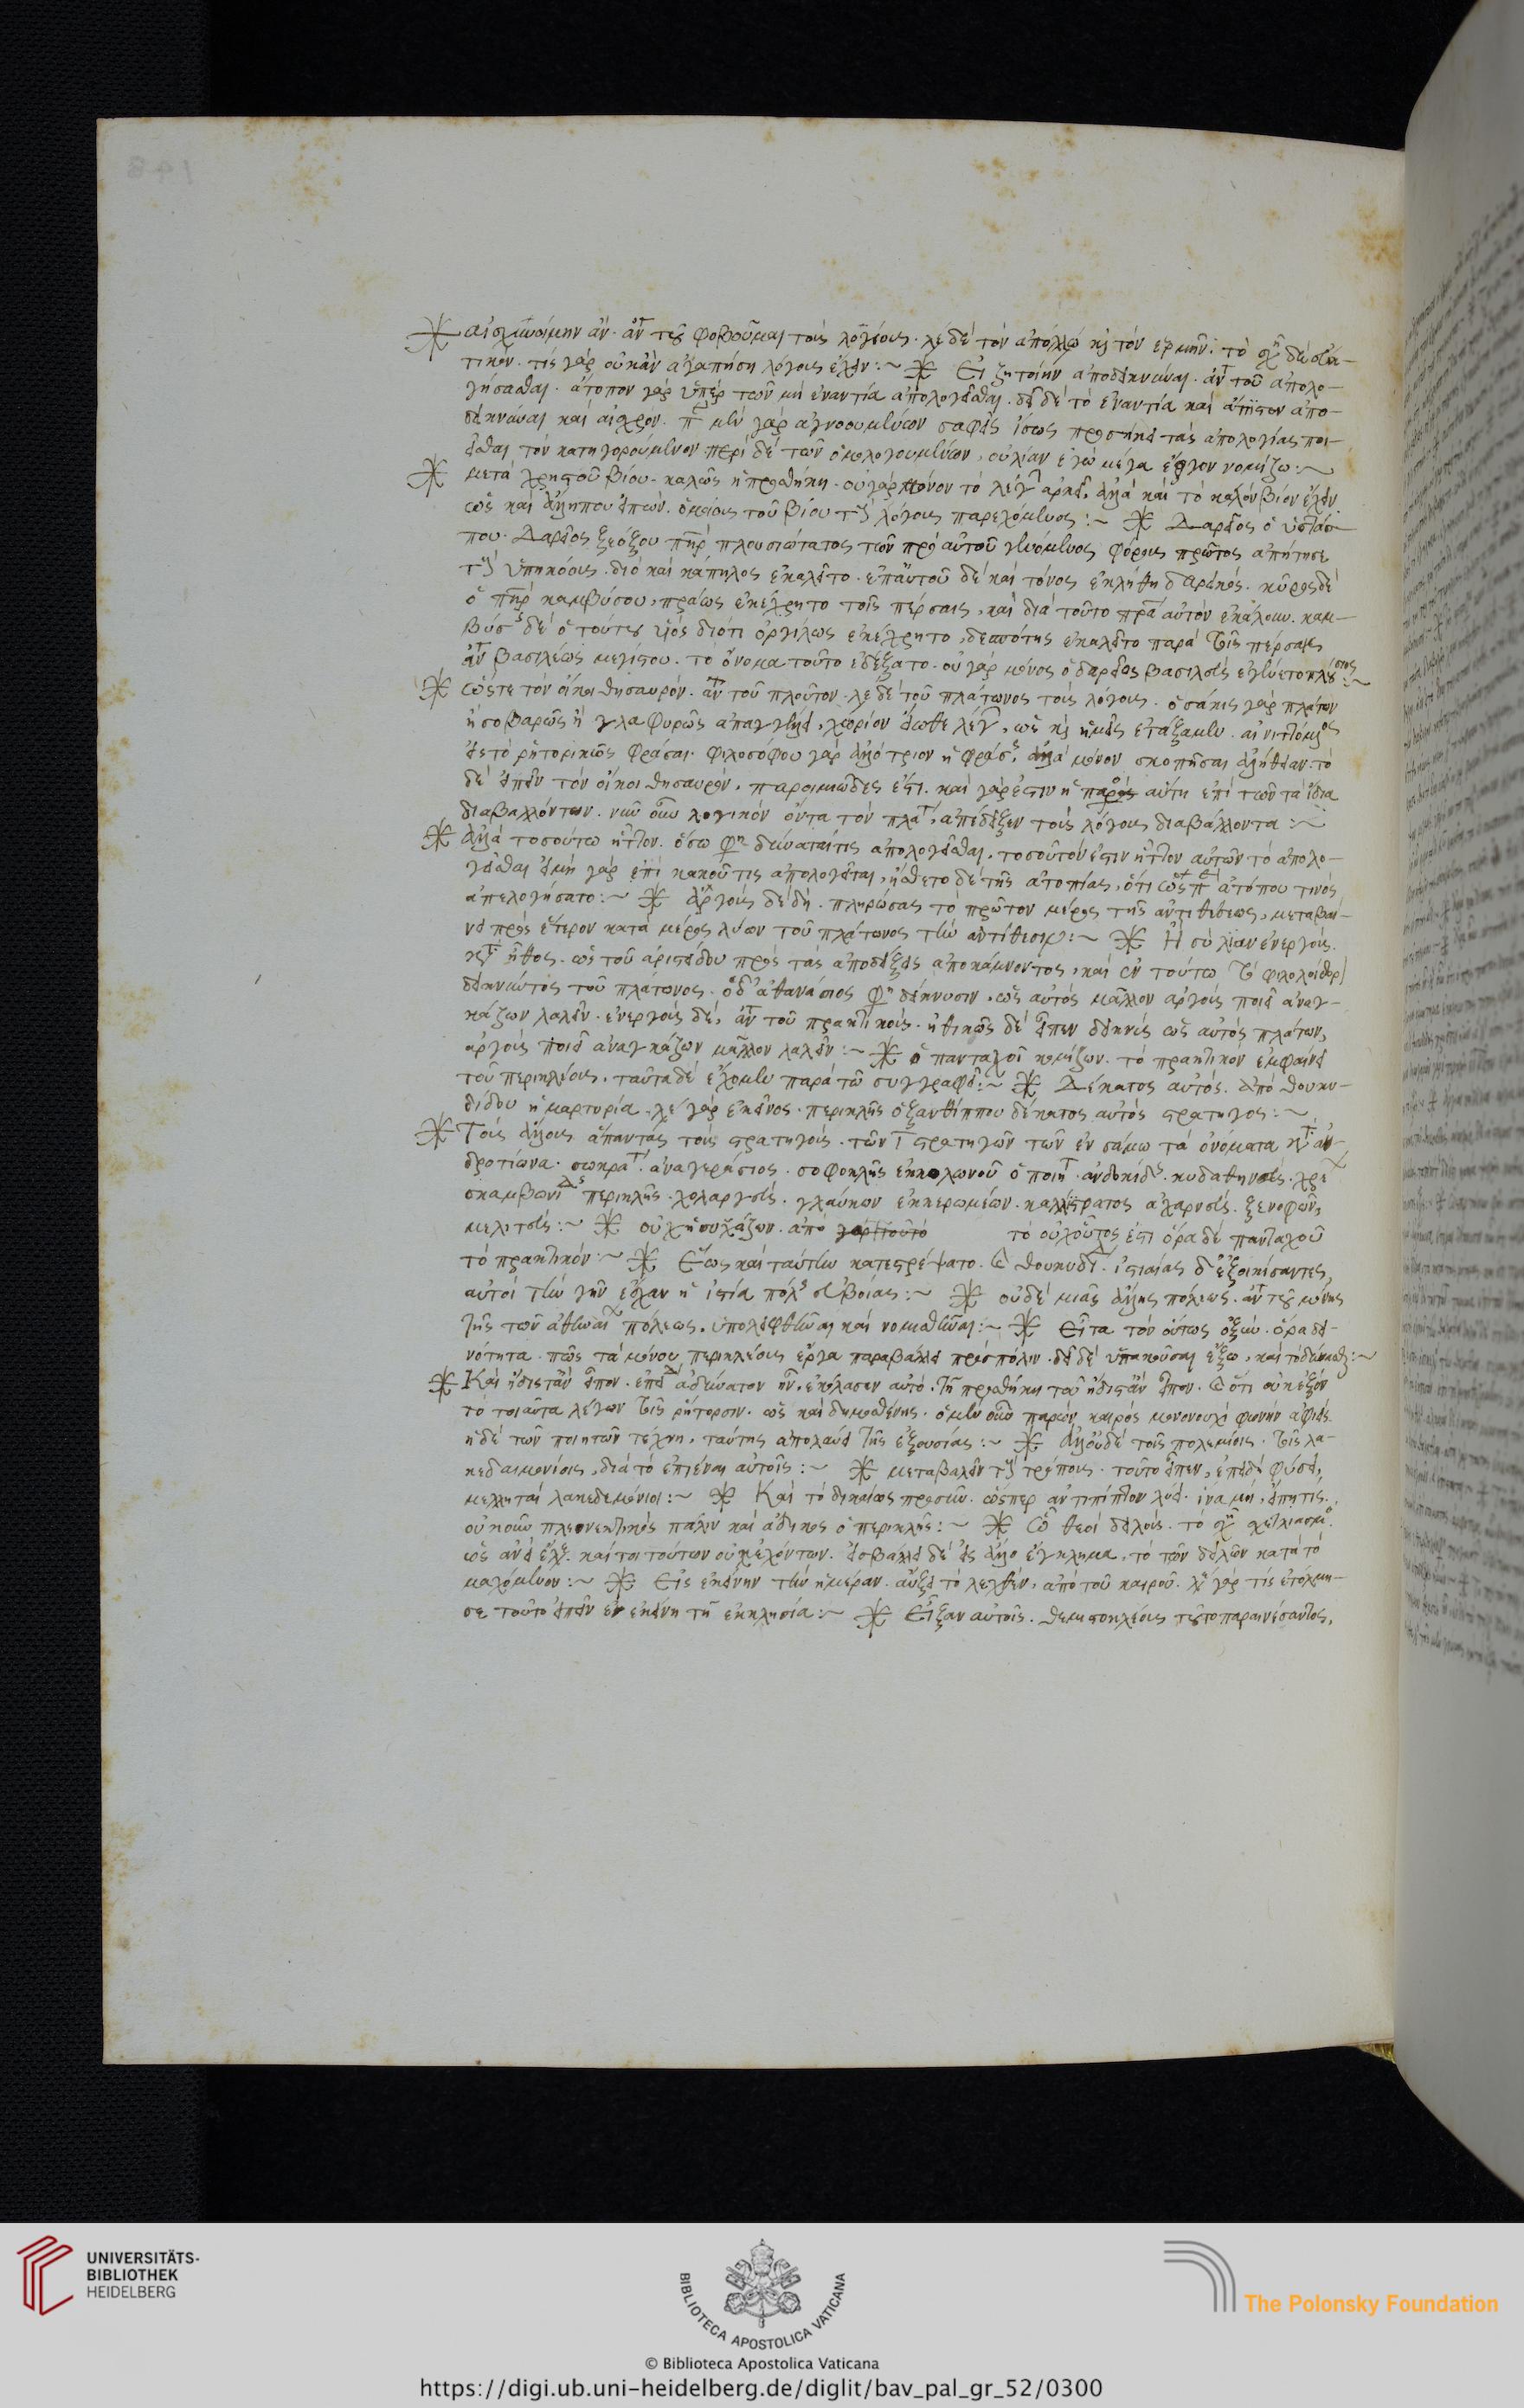 αἰσχυνοίμην ἄν. ἀντὶ τοῦ φοβοῦμαι τοὺς λογίους. λέγει δὲ τὸν ἀπόλλω καὶ τὸν ἑρμῆν: τὸ
τικόν. τίς γὰρ οὐκ ἂν ἀγαπήση λόγοις ἔχειν :~ Εἰ ζητοίην ἀποδεικνύναι. ἀντὶ τοῦ ἀπολο-
γήσασθαι. ἄτοπον γὰρ ὑπὲρ τῶν μὴ ἐναντία ἀπολογεῖσθαι. δεῖ δὲ τὸ ἐναντία καὶ ἄπιστον ἀπο-
δεικνύναι καὶ αἰσχρόν. μὲν γὰρ ἀγνοουμένων σαφεῖς ἴσως προσήκει τὰς ἀπολογίας ποι-
εῖσθαι τὸν κατηγορούμενον περὶ δὲ τῶν ὁμολογουμένων, οὐ λίαν ἐγὼ μέγα ἔργον νομίζω :~
μετὰ χρηστοῦ βίου. καλῶς ἡ προσθήκη. οὐ γὰρ μόνον τὸ λέγειν ἀρκεῖ, ἀλλὰ καὶ τὸ καλὸν βίον ἔχειν
ὡς καὶ ἀλλήπου εἰπών. ὁμοίους τοῦ βίου τοὺς λόγους παρεχόμενος :~ Δαρεῖος ὁ ὑστάσ-
που. Δαρεῖος ξέρξου πατὴρ πλουσιώτατος τῶν πρὸ αὐτοῦ γενόμενος φόρους πρῶτος ἀπήτησε
τοὺς ὑπηκόους. διὸ καὶ κάπηλος ἐκαλεῖτο. ἐπ' αὐτοῦ δὲ καὶ τόνος ἐκλήθη δαρεικός. κῦρος δὲ
ὁ πατὴρ καμβύσου, πράως ἐκέχρητο τοῖς πέρσαις, καὶ διὰ τοῦτο πατέρα αὐτὸν ἐκάλουν. καμ-
βύσης δὲ ὁ τούτου υἱὸς διότι ὀργίλως ἐκέχρητο, δεσπότης ἐκαλεῖτο παρὰ τοῖς πέρσαις
ἀντὶ βασιλέως μεγίστου. τὸ ὄνομα τοῦτο ἐδέξατο. οὐ γὰρ μόνος ὁ δαρεῖος βασιλεὺς ἐγένετο πλούσιος :~
ὥστε τὸν οἴκοι θησαυρόν. ἀντὶ τοῦ πλοῦτον. λέγει δὲ τοῦ πλάτωνος τοὺς λόγους. ὁσάκις γὰρ πλάτων
ἢ σοβαρῶς ἢ γλαφυρῶς ἀπαγγέλλει, χωρίον εἴωθε λέγειν, ὡς καὶ ἡμεῖς ἐταξάμεν. αἰνιττόμενος
εἰς τὸ ῥητορικῶς φράσαι. φιλοσόφου γὰρ ἀλλότριον ἡ φράσις, ἀλλὰ μόνον σκοπῆσαι ἀλήθειαν. τὸ
δὲ εἰπεῖν τὸν οἴκοι θησαυρόν, παροιμιῶδες ἐστι. καὶ γάρ ἐστιν ἡ αὕτη ἐπὶ τῶν τὰ ἴδια
διαβαλλόντων. νῦν οὖν λογικὸν ὄντα τὸν πλάτωνα, ἀπέδειξεν τοὺς λόγους διαβάλλοντα :~
ἀλλὰ τοσούτω ἧττον. ὅσω φησὶ δύναταί τις ἀπολογεῖσθαι, τοσοῦτόν ἐστιν ἧττον αὐτῶν τὸ ἀπολο-
γεῖσθαι εἰ μὴ γὰρ ἐπὶ κακοῦ τις ἀπολογεῖται, ᾔσθετο δὲ τῆς ἀτοπίας, ὅτι ὡς περὶ ἀτόπου τινὸς
ἀπελογήσατο :~ Ἀργοὺς δὲ δή. πληρώσας τὸ πρῶτον μέρος τῆς ἀντιθέσεως, μεταβαί-
νει πρὸς ἕτερον κατὰ μέρος λύων τοῦ πλάτωνος τὴν ἀντίθεσιν :~ Ἢ σὺ λίαν ἐνεργούς.
κατὰ ἦθος. ὡς τοῦ ἀριστείδου πρὸς τὰς ἀποδείξεις ἀποκάμνοντος, καὶ ἐν τούτω τὸ φιλολοίδορον
δεικνύντος τοῦ πλάτωνος. ὁ δ' ἀθανάσιος φησὶ δείκνυσιν, ὡς αὐτὸς μᾶλλον ἀργοὺς ποιεῖ ἀναγ-
κάζων λαλεῖν. ἐνεργοὺς δέ, ἀντὶ τοῦ πρακτικούς. ἠθικῶς δὲ εἶπεν δεικνὺς ὡς αὐτὸς πλάτων,
ἀργοὺς ποιεῖ ἀναγκάζων μᾶλλον λαλεῖν :~ ὁ πανταχοῖ κομίζων. τὸ πρακτικὸν ἐμφαίνει
τοῦ περικλέους. ταῦτα δὲ ἔχομεν παρὰ τῶ συγγραφεῖ :~ Δέκατος αὐτός. ἀπὸ θουκυ-
δίδου ἡ μαρτυρία. λέγει γὰρ ἐκεῖνος. περικλῆς ὁ ξανθίππου δέκατος αὐτὸς στρατηγός :~
Τοὺς ἄλλους ἅπαντας τοὺς στρατηγούς. τῶν ι στρατηγῶν τῶν ἐν σάμω τὰ ὀνόματα κατὰ ἀν-
δροτίωνα. σωκράτης. ἀναγεράσιος. σοφοκλῆς ἐκ κολωνοῦ ὁ ποιητής. ἀνδοκίδης. κυδαθηνεύς. χρε
σκαμβωνίδης περικλῆς. χολαργεύς. γλαύκων ἐκ κερωμέων. καλλίστρατος ἀχαρνεύς. ξενοφῶν,
μελιτεύς :~ οὐχ ἡσυχάζων. ἀπὸ τὸ οὐχ οὗτος ἐστι ὅρα δὲ πανταχοῦ
τὸ πρακτικόν :~ Ἕως καὶ ταύτην κατεστρέψατο. θουκυδίδης. ἱστιαίας δ' ἐξοικίσαντες,
αὐτοὶ τὴν γῆν ἔσχον ἡ ἱστία πόλις εὐβοίας :~ οὐδὲ μιᾶς ἄλλης πόλεως. ἀντὶ τοῦ μόνης
τῆς τῶν ἀθηναίων πόλεως. ὑπολειφθῆναι καὶ νομισθῆναι :~ Εἶτα τὸν οὕτως ὀξύν. ὅρα δει-
νότητα. πῶς τὰ μόνου περικλέους ἔργα παραβάλλει πρὸς πόλιν. δεῖ δὲ ὑπακοῦσαι ἔξω,
Καὶ ἥδιστ' ἂν εἶπον. ἐπεὶ ἀδύνατον ἦν, ἐκόλασεν αὐτό. τῆ προσθήκη τοῦ ἥδιστ' ἂν εἶπον. ὅτι οὐκ ἐξὸν
τὸ τοιαῦτα λέγων τοῖς ῥήτορσιν. ὡς καὶ δημοσθένης. ὁ μὲν οὖν παρὼν καιρὸς μονονουχὶ φωνὴν ἀφιείς.
ἡ δὲ τῶν ποιητῶν τέχνη, ταύτης ἀπολαύει τῆς ἐξουσίας :~ ἀλλ' οὐδὲ τοῖς πολεμίοις. τοῖς λα-
κεδαιμονίοις, διὰ τὸ ἐπιέναι αὐτοῖς :~ μεταβαλεῖν τοὺς τρόπους. τοῦτο εἶπεν, ἐπειδὴ φύσει,
μελληταὶ λακεδεμόνιοι :~ Καὶ τὸ δικαίως προσῆν. ὥσπερ ἀντιπίπτον λύει. ἵνα μὴ, εἴπη τις.
οὐκοῦν πλεονεκτικὸς πάλιν καὶ ἄδικος ὁ περικλῆς :~ Ὦ θεοὶ δειλούς. τὸ σχῆμα σχετλιασμός.
ὡς ἂν εἰ ἔλεγε. καίτοι τούτων οὐκ ἐχόντων. εἰσβάλλει δὲ εἰς ἄλλο ἔγκλημα, τὸ τῶν δειλῶν κατὰ τὸ
μαχόμενον :~ Εἰς ἐκείνην τὴν ἡμέραν. αὔξει τὸ λεχθέν, ἀπὸ τοῦ καιροῦ. λέγει γὰρ τίς ἐτόλμη-
σε τοῦτο εἰπεῖν ἐν ἐκείνη τῆ ἐκκλησία :~ Εἶξαν αὐτοῖς. θεμιστοκλέους τοῦτο παραινέσαντος,
UNIVERSITÄTS-
BIBLIOTHEK
HEIDELBERG
BIBLIOTECA APOSTOLICA VATICANA
The Polonsky Foundation
© Biblioteca Apostolica Vaticana
https://digi.ub.uni-heidelberg.de/diglit/bav_pal_gr_52/0300